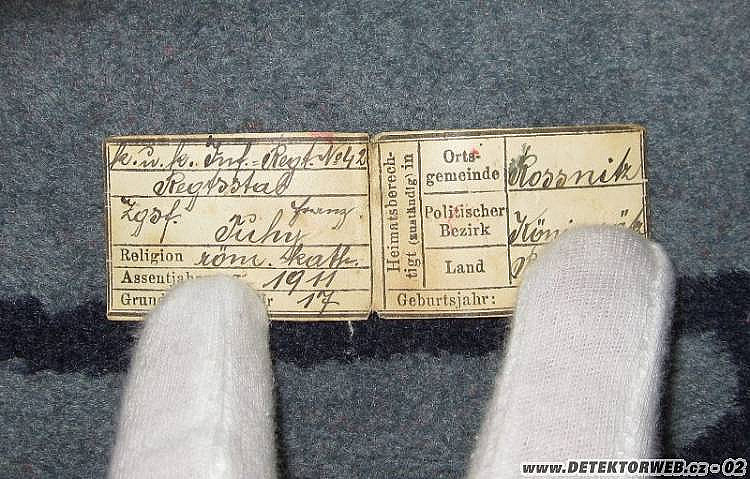 k. u. k. Inf.-Regt. No 42
Regtsstab
Zgsf. Franz
Tichy
Religion röm. kath.
Assentjahr 1911
Grund 17
Heimatsberech-
tigt (zuständig) in
Orts-
gemeinde Rossnitz
Politischer
Bezirk
Land
Geburtsjahr:
www.DETEKTORWEB.cz - 02